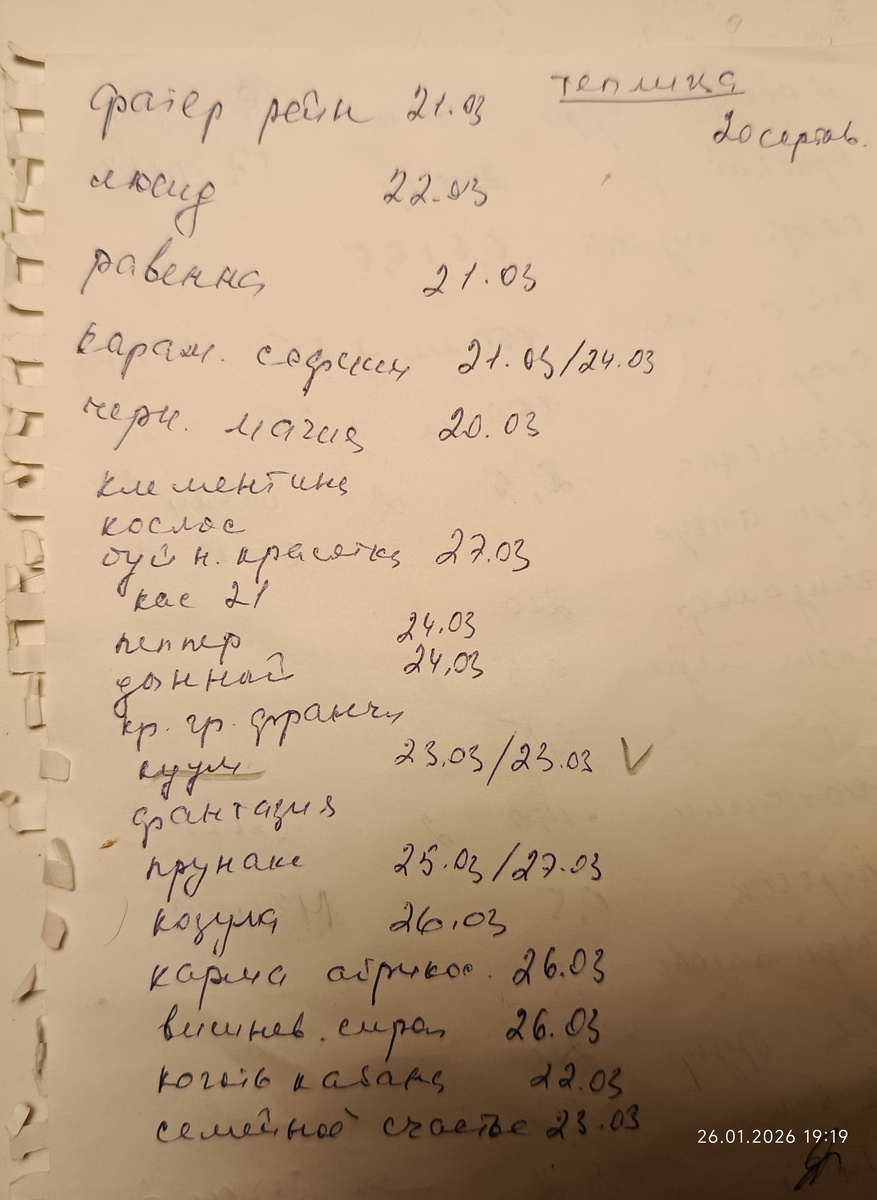 теплица
20 сортов.
фатер рейн 21.03
люсид 22.03
равенна 21.03
карам. софиии 21.03/24.03
черн. магия 20.03
клементина
космос
буйн. красотка 27.03
кас 21
пеппер 24.03
дынный 24.03
кр. гр. франчи
куум 23.03/23.03 V
фантазия
прунакс 25.03/27.03
козула 26.03
карма абрикос. 26.03
вишнев. сироп 26.03
коготь кабана 22.03
семейное счастье 23.03
26.01.2026 19:19